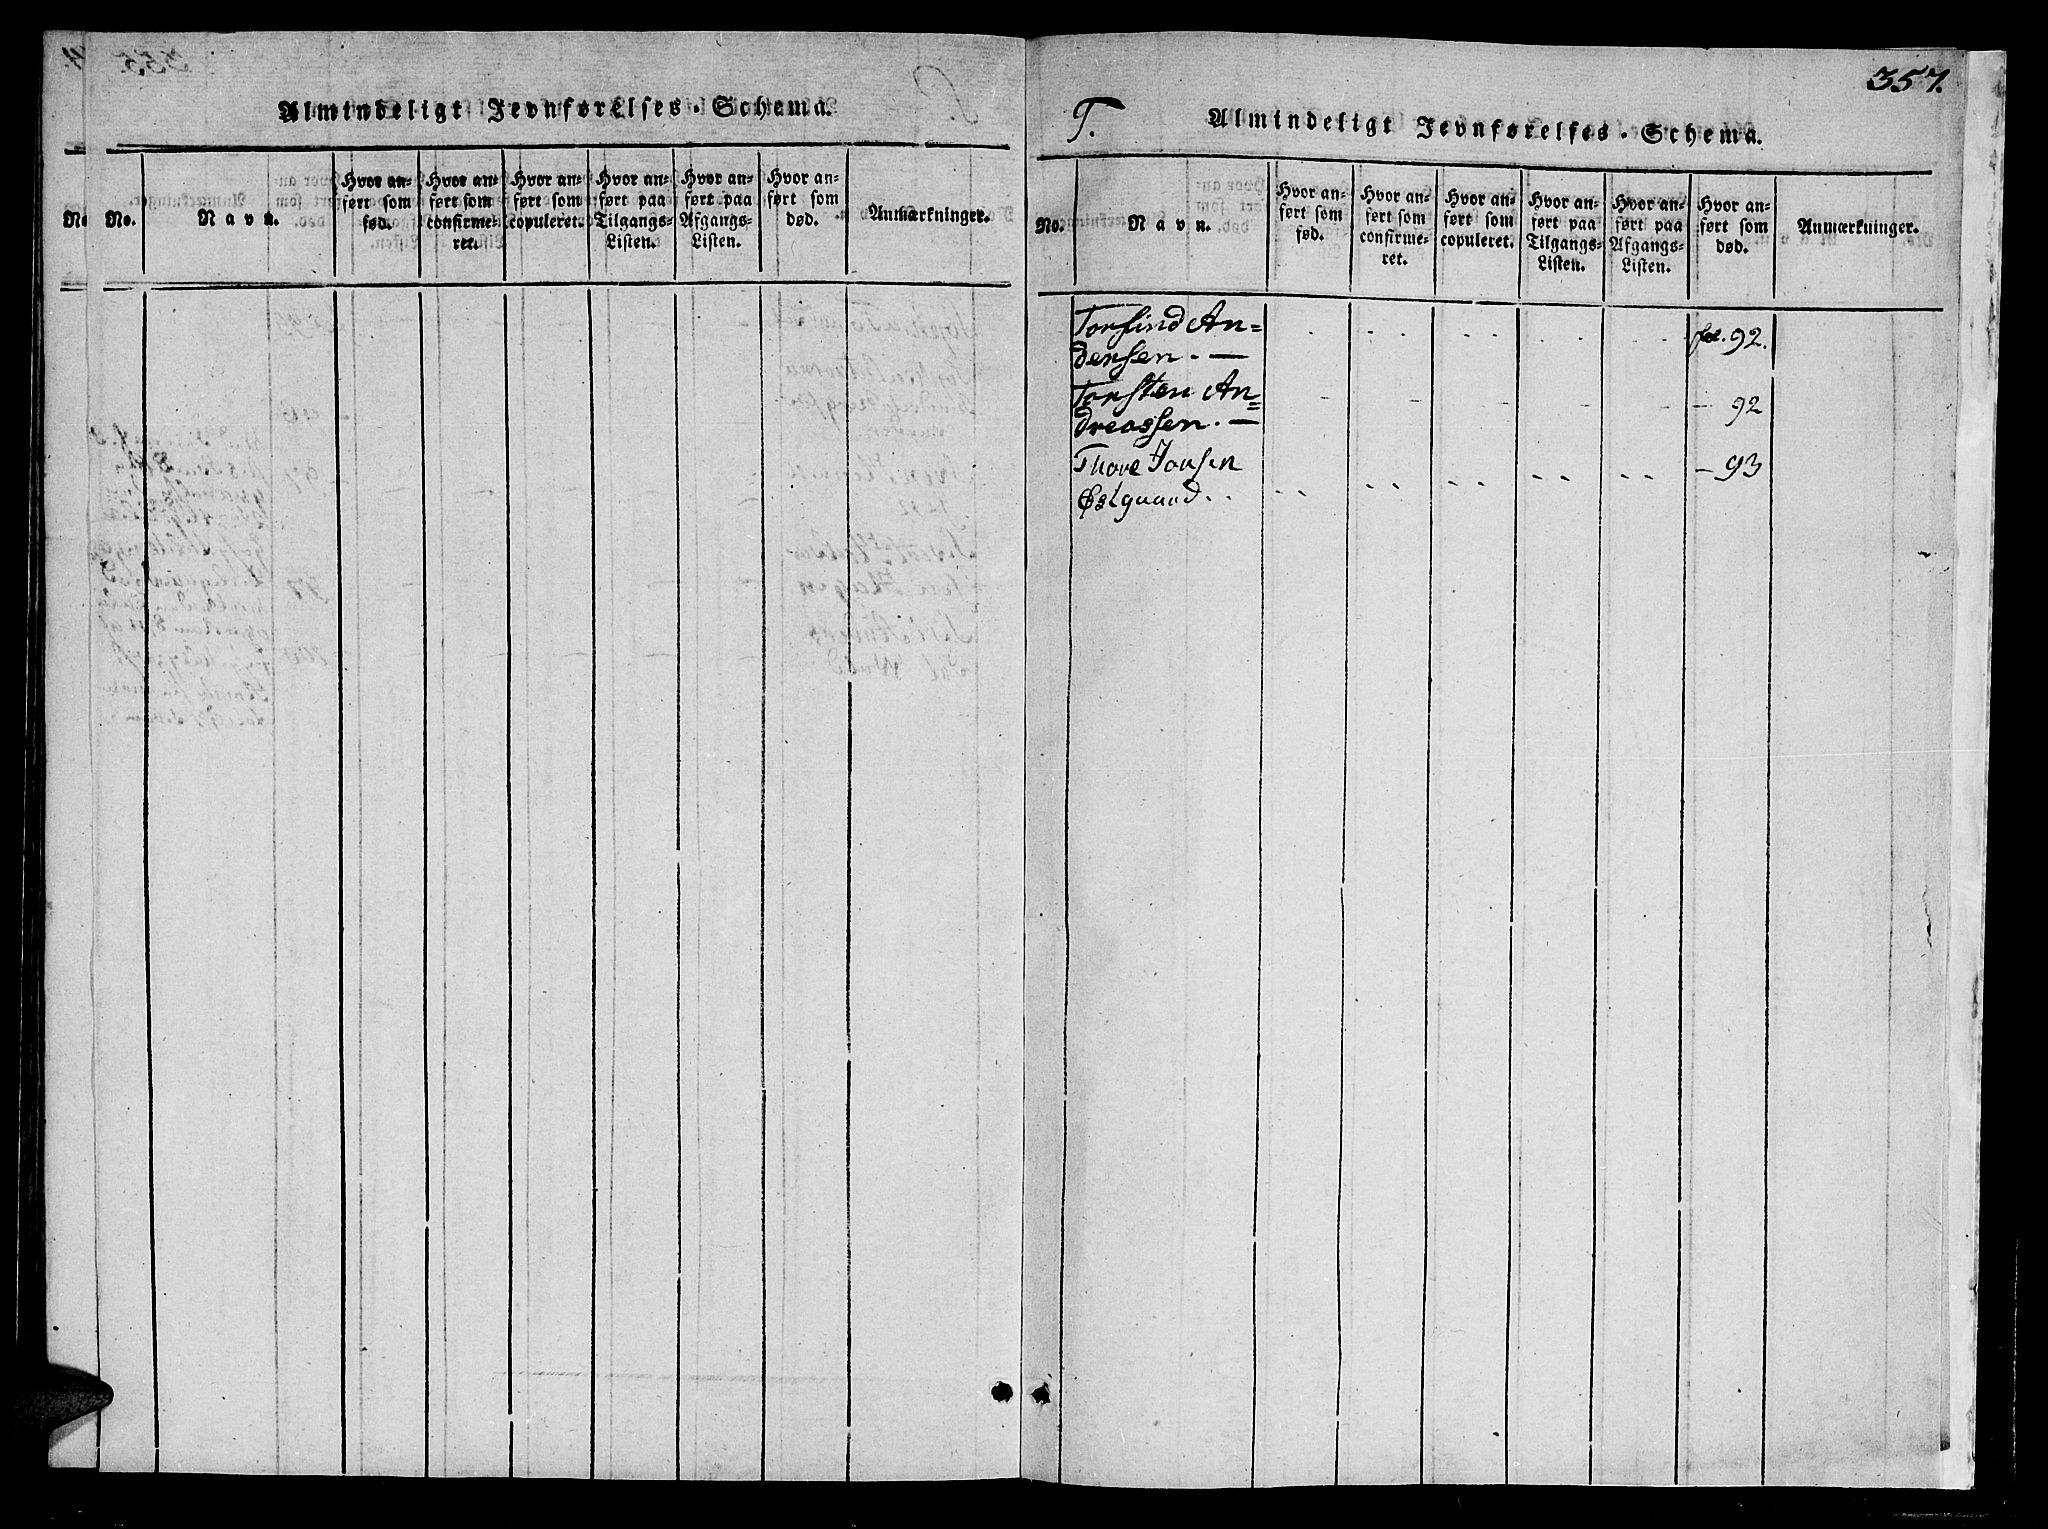 Almindeligt Jevnførelses-Schema.
No. No. Navn. Hvor anført som fød. Hvor anført som confirmeret. Hvor anført som copuleret. Hvor anført paa Tilgangs-Listen. Hvor anført paa Afgangs-Listen. Hvor anført som død. Anmærkninger.
357.
T. Almindeligt Jevnførelses-Schema.
No. Navn. Hvor anført som fød. Hvor anført som confirmeret. Hvor anført som copuleret. Hvor anført paa Tilgangs-Listen. Hvor anført paa Afgangs-Listen. Hvor anført som død. Anmærkninger.
Torfind An= fol. 92.
dersen. —
Torsten An= — 92
dreassen. —
Thore Jonsen — 93
Østgaard. .